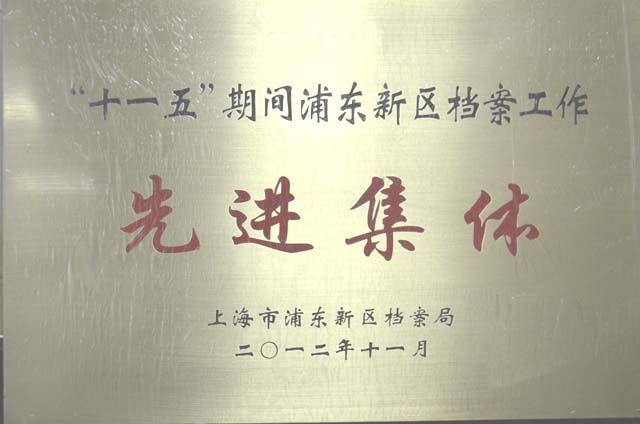 “十一五”期间浦东新区档案工作
先进集体
上海市浦东新区档案局
二〇一二年十一月